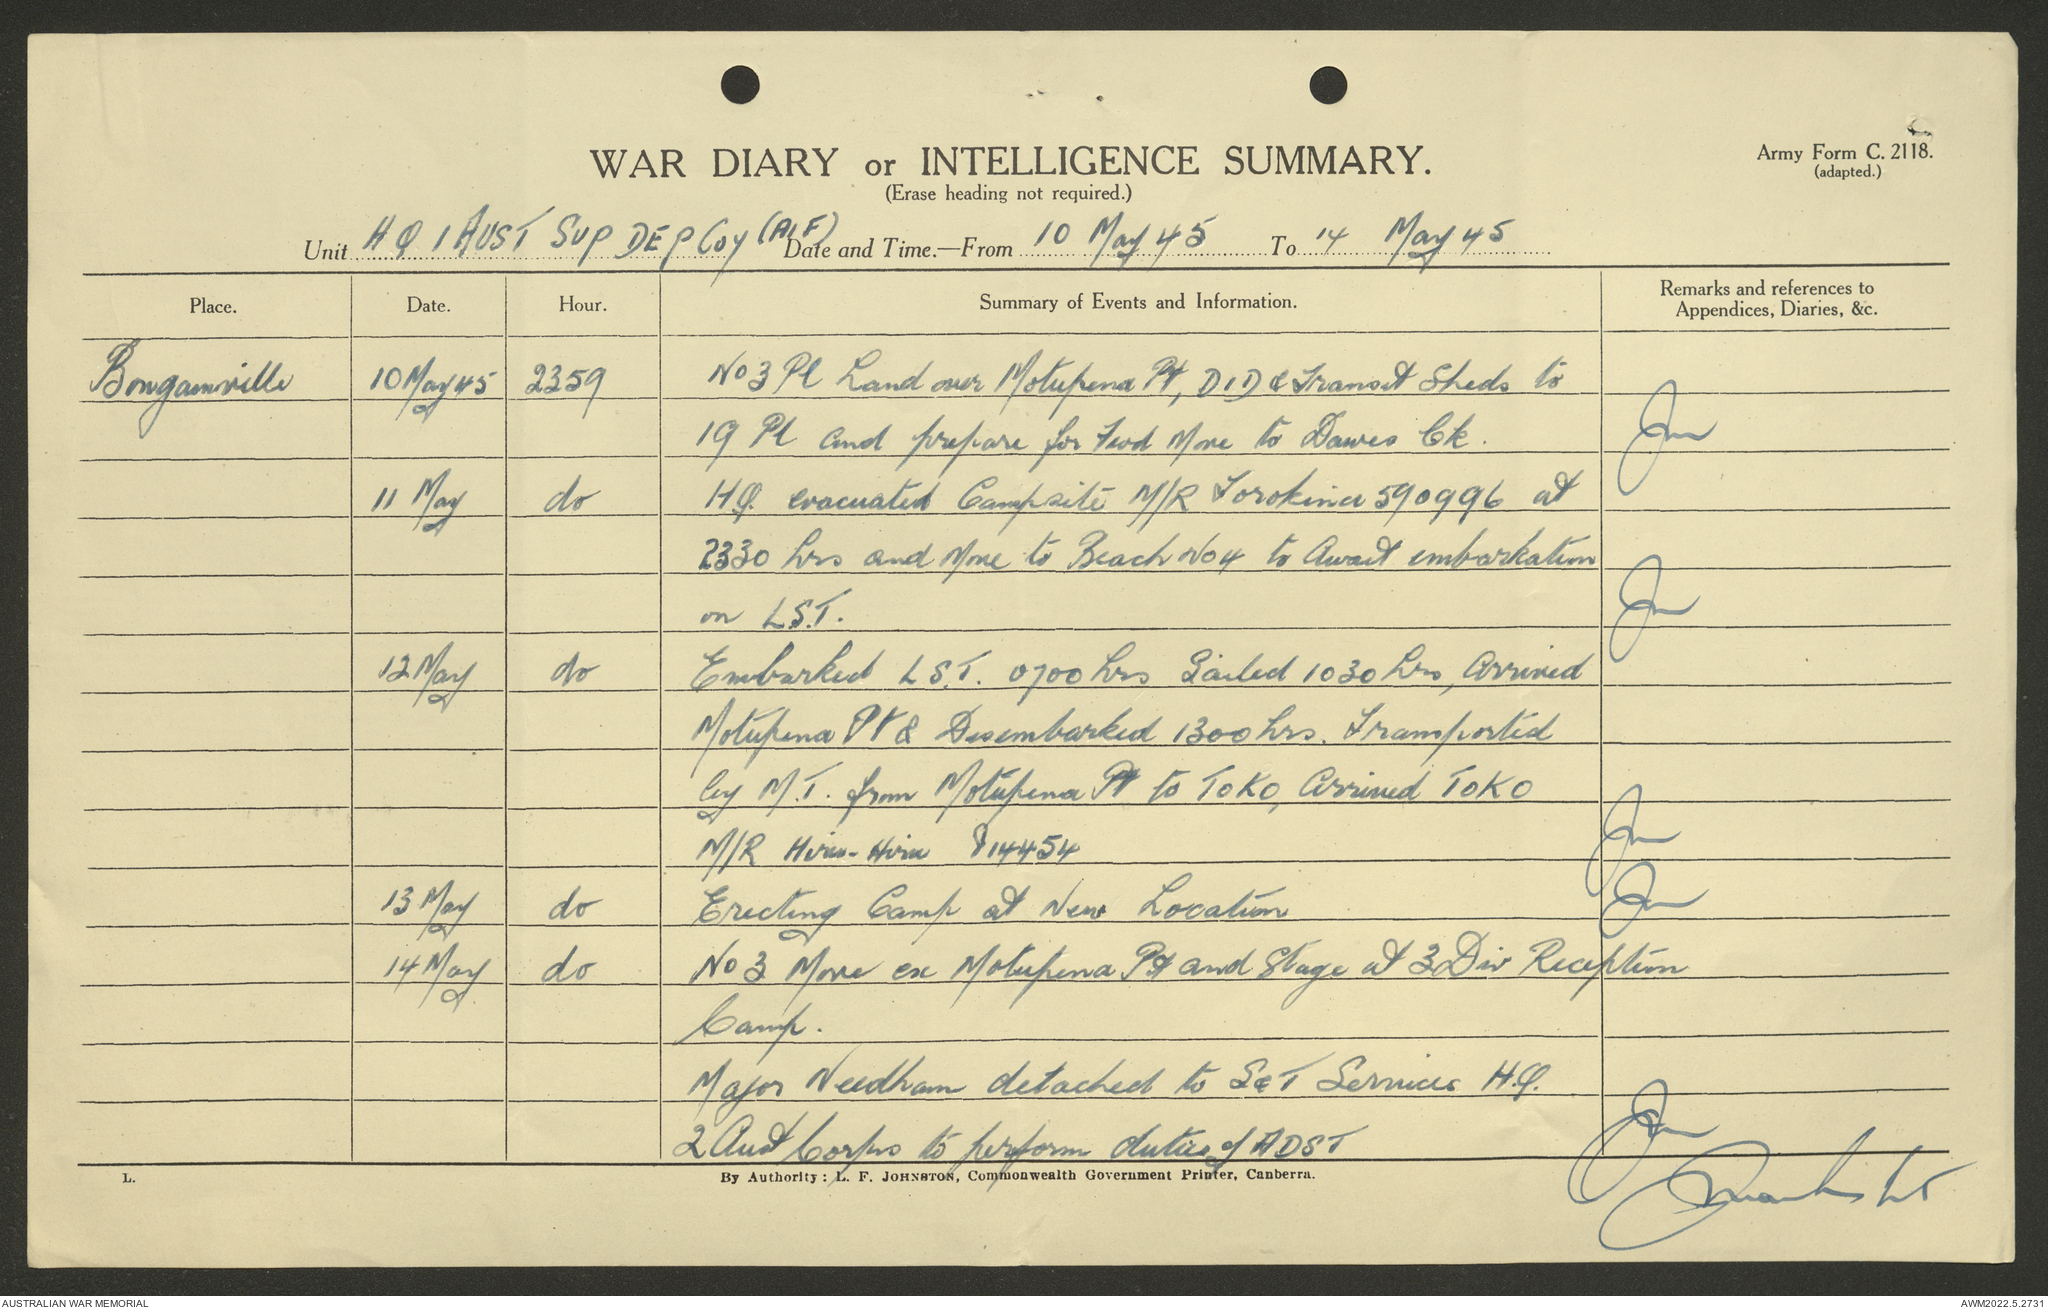 WAR DIARY or INTELLIGENCE SUMMARY.
(Erase heading not required.)
Army Form C. 2118.
(adapted.)
Unit HQ 1 AUST SUP DEP Coy (AIF) Date and Time.—From 10 May 45 To 14 May 45
Place. Date. Hour. Summary of Events and Information. Remarks and references to
Appendices, Diaries, &c.
Bougainville 10 May 45 2359 No 3 Pl Hand over Motupena Pt, DID & Transit Sheds to
19 Pl and prepare for Fwd Move to Dawes Ck.
11 May do HQ. evacuated Campsite M/R Torokina 590996 at
2330 hrs and Move to Beach No 4 to Await embarkation
on L.S.T.
12 May do Embarked L.S.T. 0700 hrs Sailed 1030 hrs, Arrived
Motupena Pt & Disembarked 1300 hrs. Transported
by M.T. from Motupena Pt to TOKO, Arrived TOKO
M/R Hiru-Hiru 814454
13 May do Erecting Camp at New Location
14 May do No 3 Move ex Motupena Pt and Stage at 3 Div Reception
Camp.
Major Needham detached to S&T Services H.Q.
2 Aust Corps to perform duties of ADST
L.
By Authority: L. F. JOHNSTON, Commonwealth Government Printer, Canberra.
AUSTRALIAN WAR MEMORIAL
AWM2022.5.2731